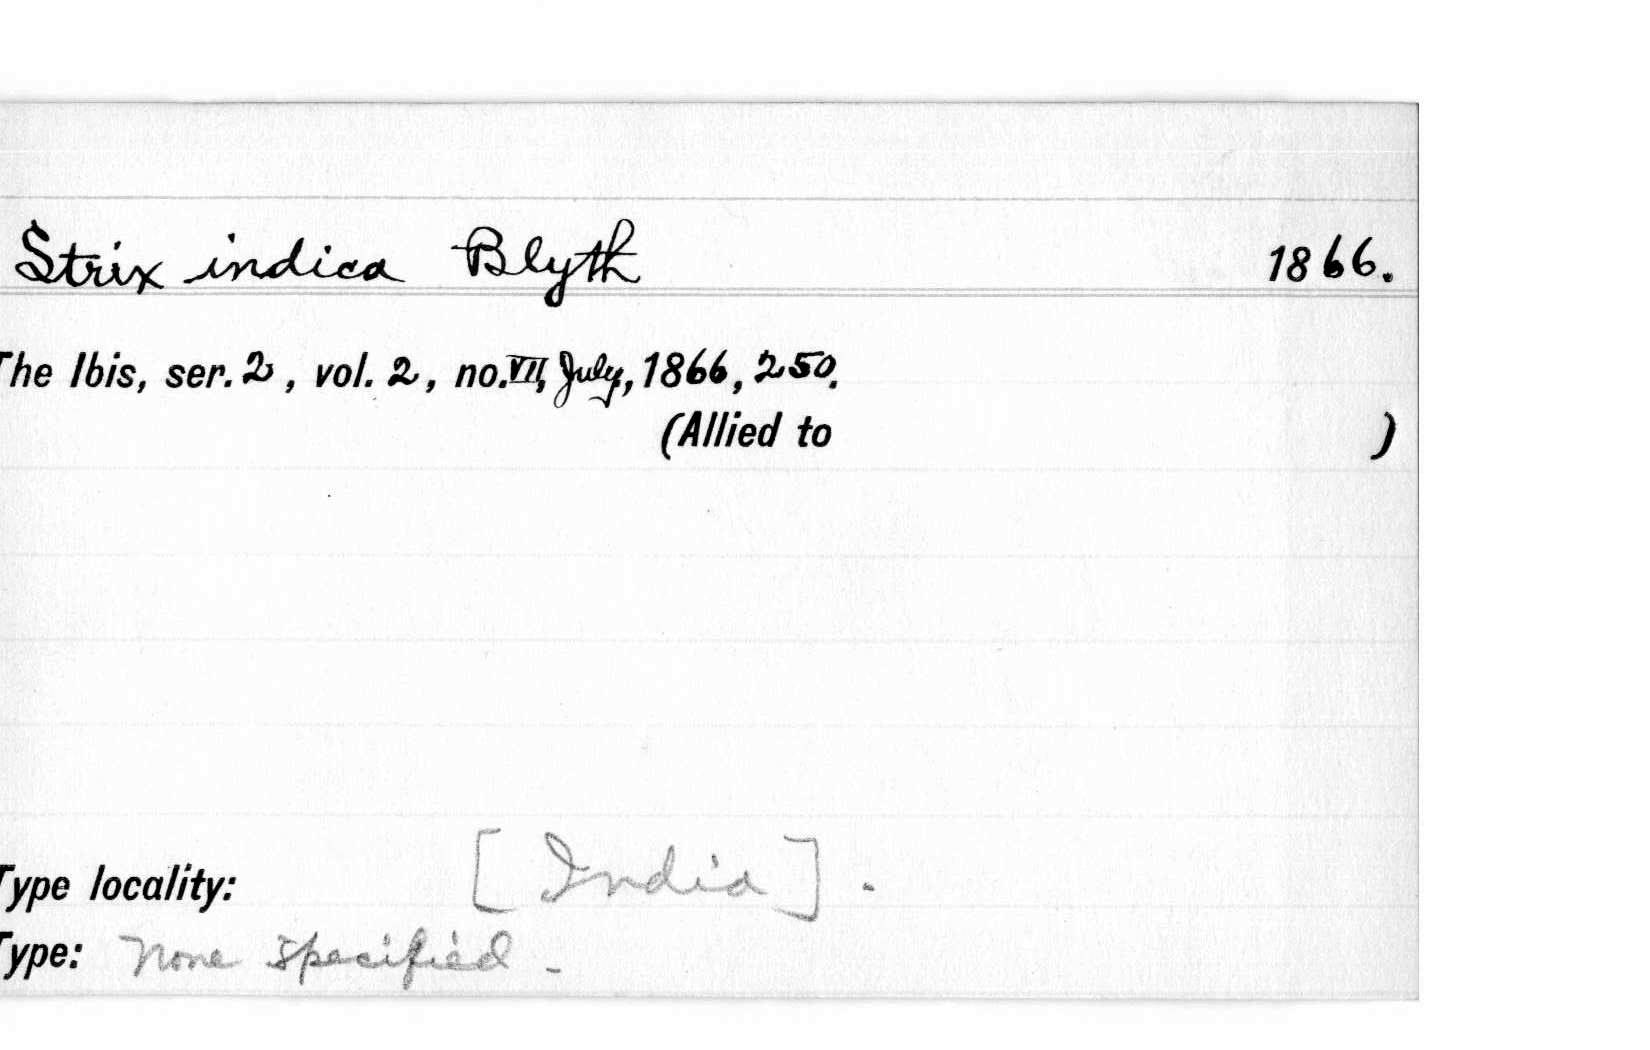 Strix indica Blyth 1866.
The Ibis, ser. 2, vol. 2, no. VII, July, 1866, 250.
(Allied to )
Type locality: [India].
Type: None specified.